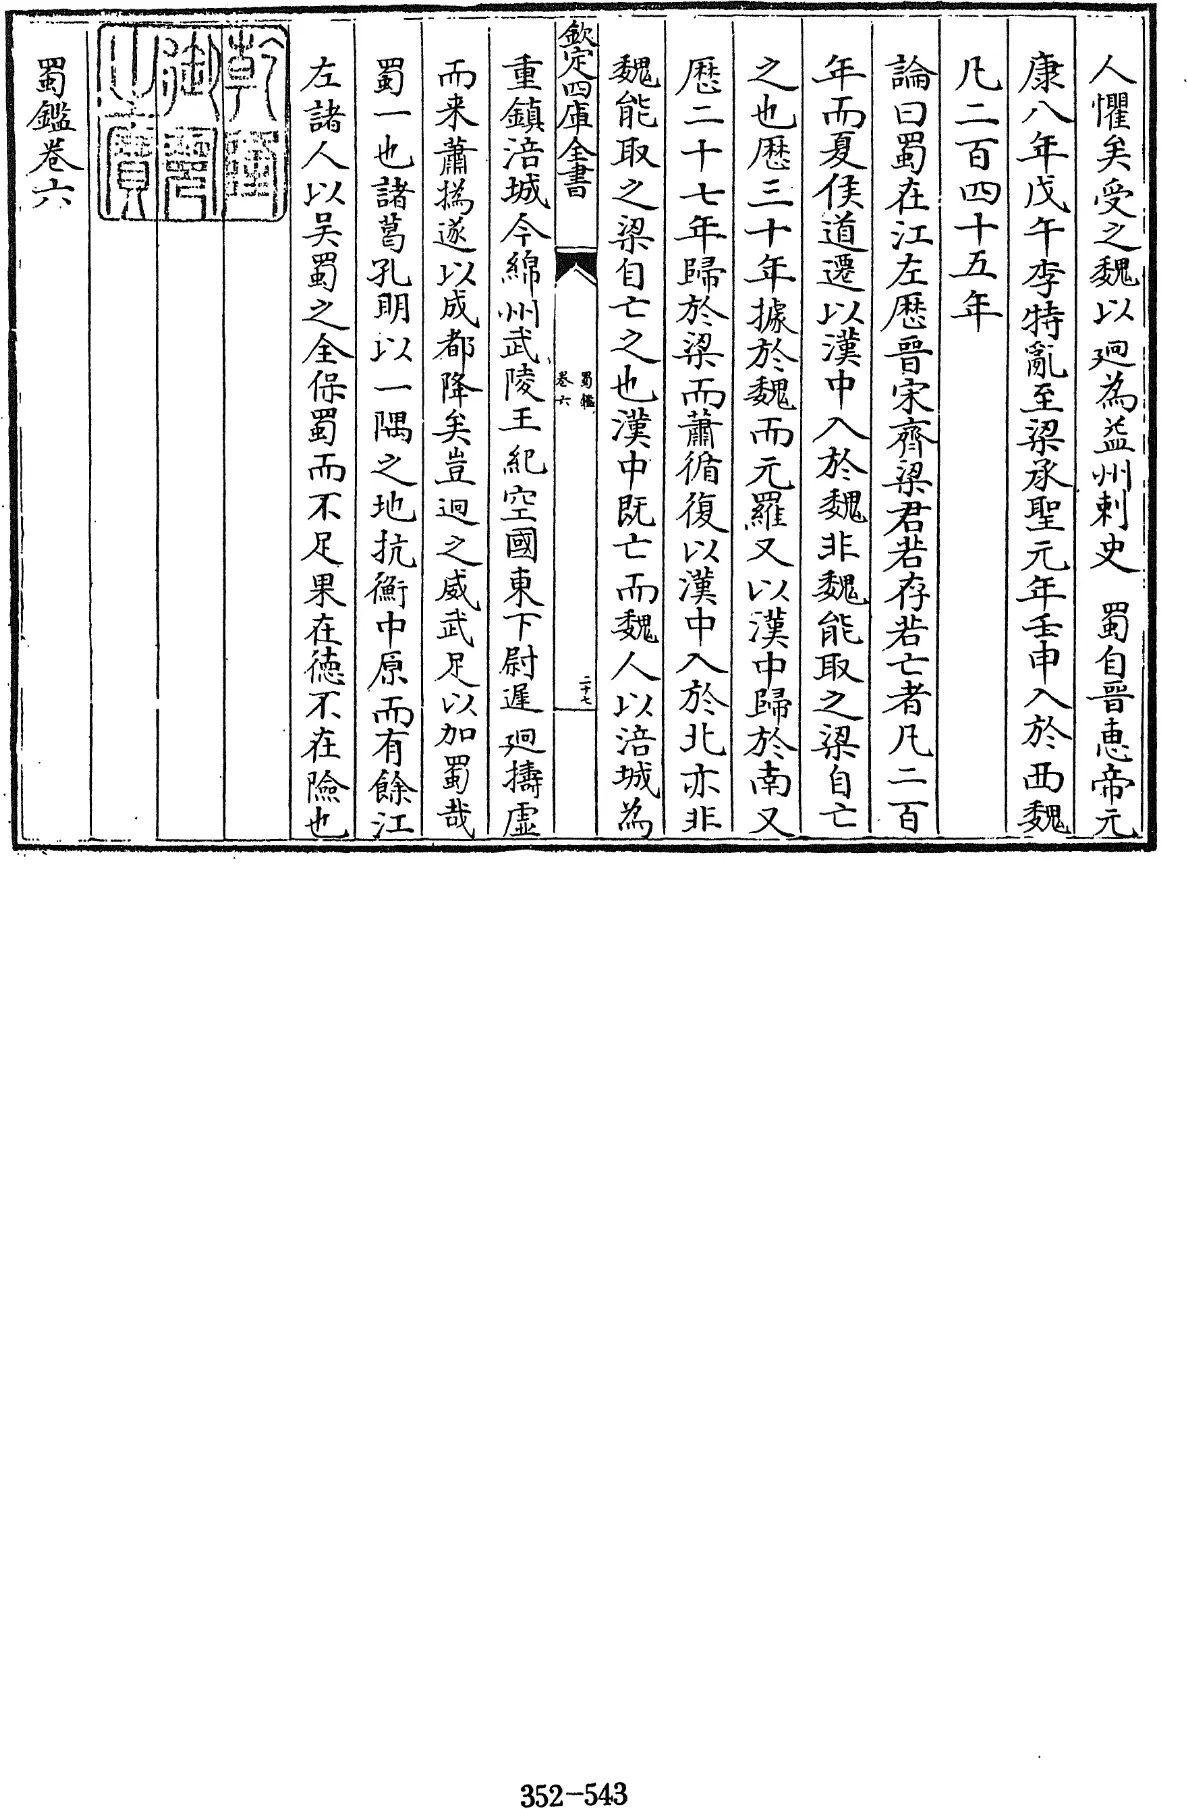 人懼矣受之魏以迥為益州刺史　蜀自晉惠帝元
康八年戊午李特亂至梁承聖元年壬申入於西魏
凡二百四十五年
論曰蜀在江左歷晉宋齊梁君若存若亡者凡二百
年而夏侯道遷以漢中入於魏非魏能取之梁自亡
之也歷三十年據於魏而元羅又以漢中歸於南又
歷二十七年歸於梁而蕭循復以漢中入於北亦非
魏能取之梁自亡之也漢中既亡而魏人以涪城為
欽定四庫全書
蜀鑑
卷六
二十七
重鎮涪城今綿州武陵王紀空國東下尉遲迥擣虛
而来蕭撝遂以成都降矣豈迥之威武足以加蜀哉
蜀一也諸葛孔明以一隅之地抗衡中原而有餘江
左諸人以吴蜀之全保蜀而不足果在德不在險也
乾隆
御覽
之寶
蜀鑑卷六
352-543